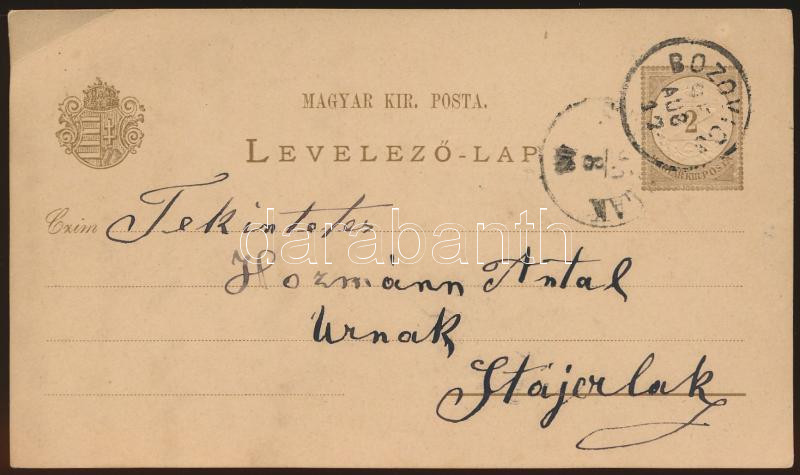 MAGYAR KIR. POSTA.
LEVELEZŐ-LAP
BOZOVICS
AUG
13
2
MAGY. KIR. POSTA
8
LAK
Czim Tekintetes
Hozmánn Antal
Urnak
Stájerlak
darabanth